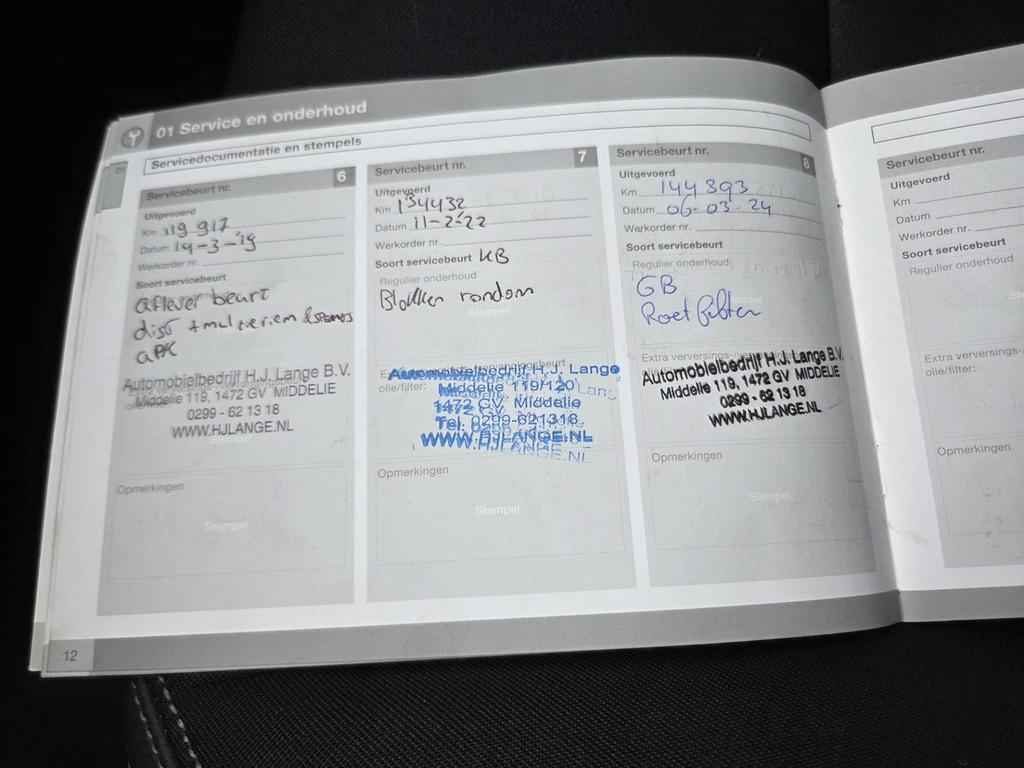 01 Service en onderhoud
01
Servicedocumentatie en stempels
Servicebeurt nr. 6
Uitgevoerd
Km 119 917
Datum 19-3-'19
Werkorder nr.
Soort servicebeurt
aflever beurt
dist + multieriem &
APK
Automobielbedrijf H.J. Lange B.V.
Middelie 119, 1472 GV MIDDELIE
0299 - 62 13 18
WWW.HJLANGE.NL
Opmerkingen
Stempel
Servicebeurt nr. 7
Uitgevoerd
Km 134432
Datum 11-2-22
Werkorder nr.
Soort servicebeurt KB
Regulier onderhoud
Blokken rondom
Stempel
olie/filter:
Automobielbedrijf H.J. Lange
Middelie 119/120
1472 GV Middelie
Tel. 0299-621318
WWW.HJLANGE.NL
Opmerkingen
Stempel
Servicebeurt nr. 8
Uitgevoerd
Km 144 893
Datum 06-03-24
Werkorder nr.
Soort servicebeurt
Regulier onderhoud
GB
Roetfilter
Extra verversings-
Automobielbedrijf H.J. Lange B.V.
Middelie 119, 1472 GV MIDDELIE
0299 - 62 13 18
WWW.HJLANGE.NL
Opmerkingen
Stempel
Servicebeurt nr.
Uitgevoerd
Km
Datum
Werkorder nr.
Soort servicebeurt
Regulier onderhoud
Extra verversings-
olie/filter:
Opmerkingen
12